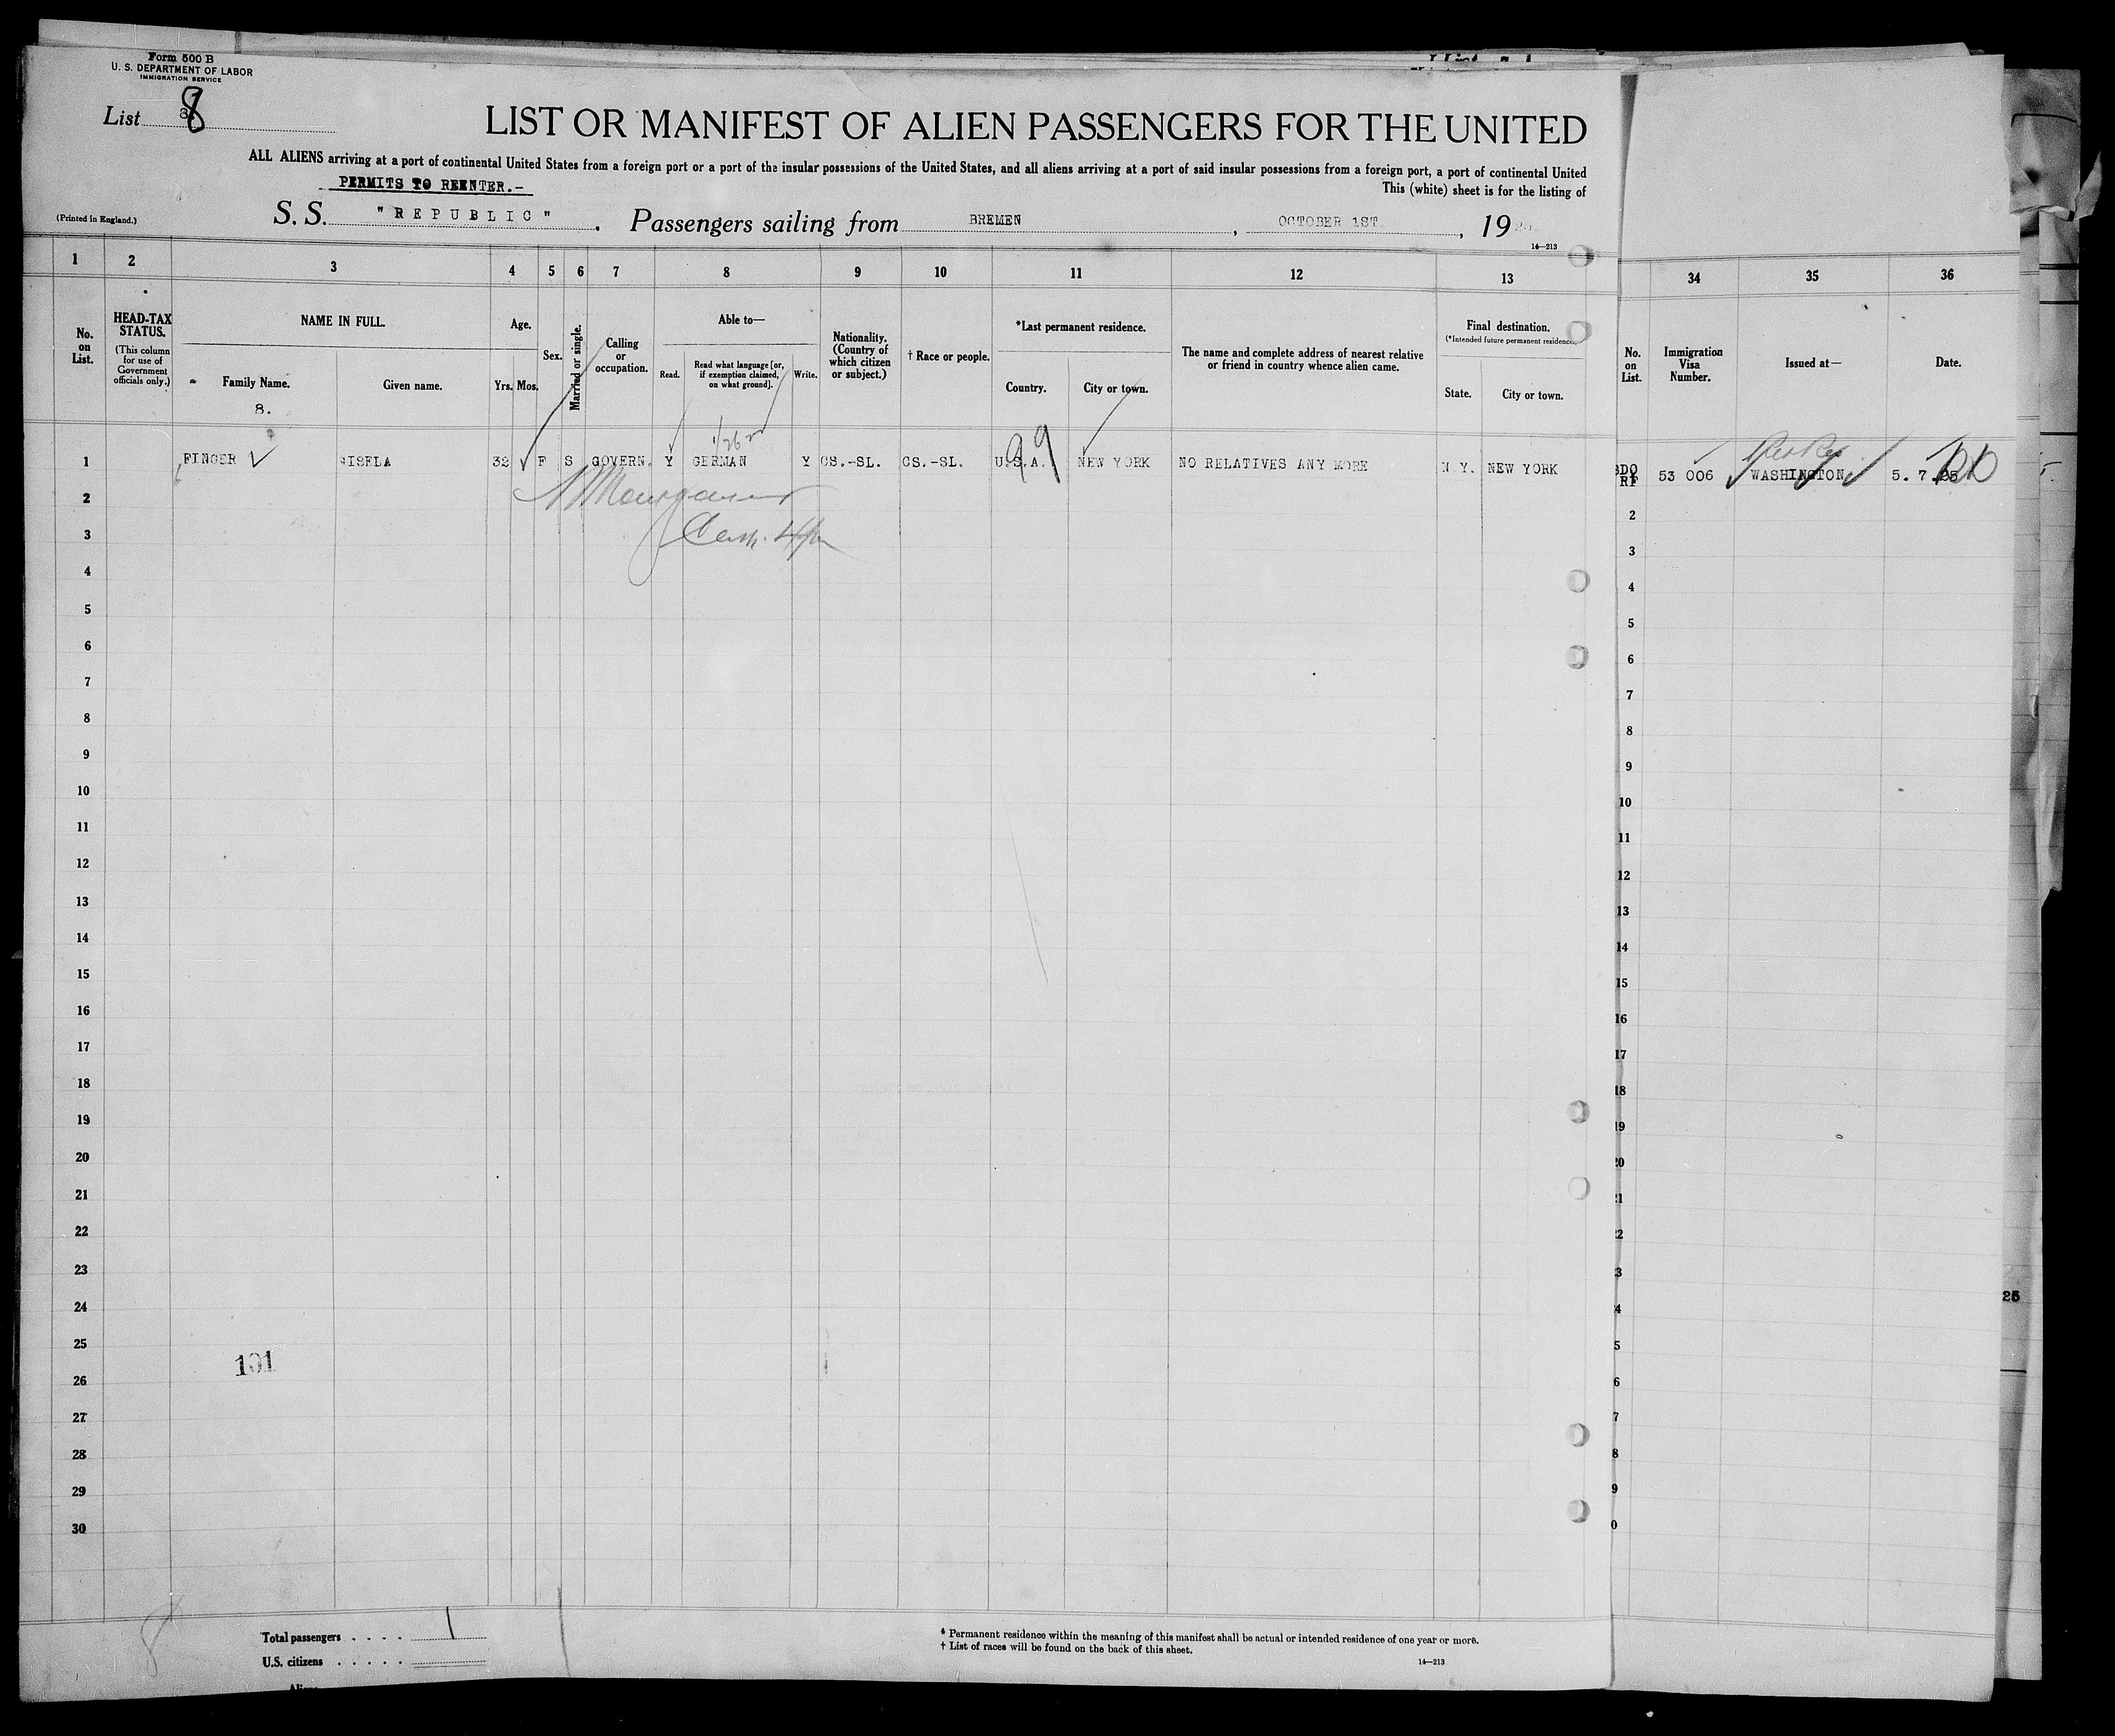 Form 500 B
U. S. DEPARTMENT OF LABOR
IMMIGRATION SERVICE
List 8
LIST OR MANIFEST OF ALIEN PASSENGERS FOR THE UNITED
ALL ALIENS arriving at a port of continental United States from a foreign port or a port of the insular possessions of the United States, and all aliens arriving at a port of said insular possessions from a foreign port, a port of continental United
PERMITS TO REENTER.-
This (white) sheet is for the listing of
(Printed in England.)
S. S. "REPUBLIC". Passengers sailing from BREMEN, OCTOBER 1ST, 1925.
14-213
1 2 3 4 5 6 7 8 9 10 11 12 13 34 35 36
No. on List.
HEAD-TAX STATUS.
(This column for use of Government officials only.)
NAME IN FULL.
Family Name.
Given name.
8.
Age.
Yrs. Mos.
Sex.
Married or single.
Calling or occupation.
Able to—
Read.
Read what language [or, if exemption claimed, on what ground].
Write.
Nationality. (Country of which citizen or subject.)
† Race or people.
*Last permanent residence.
Country.
City or town.
The name and complete address of nearest relative or friend in country whence alien came.
Final destination.
(*Intended future permanent residence.)
State.
City or town.
No. on List.
Immigration Visa Number.
Issued at—
Date.
1 FINGER GISELA 32 F S GOVERN. Y GERMAN Y CS.-SL. CS.-SL. U.S.A. NEW YORK NO RELATIVES ANY MORE N.Y. NEW YORK 53 006 WASHINGTON 5. 7.25
2
3
4
5
6
7
8
9
10
11
12
13
14
15
16
17
18
19
20
21
22
23
24
25
101
26
27
28
29
30
2
3
4
5
6
7
8
9
10
11
12
13
14
15
16
17
18
19
20
21
22
23
24
25
26
27
28
29
30
25
8
Total passengers . . . . 1
U.S. citizens . . . . .
* Permanent residence within the meaning of this manifest shall be actual or intended residence of one year or more.
† List of races will be found on the back of this sheet.
14—213